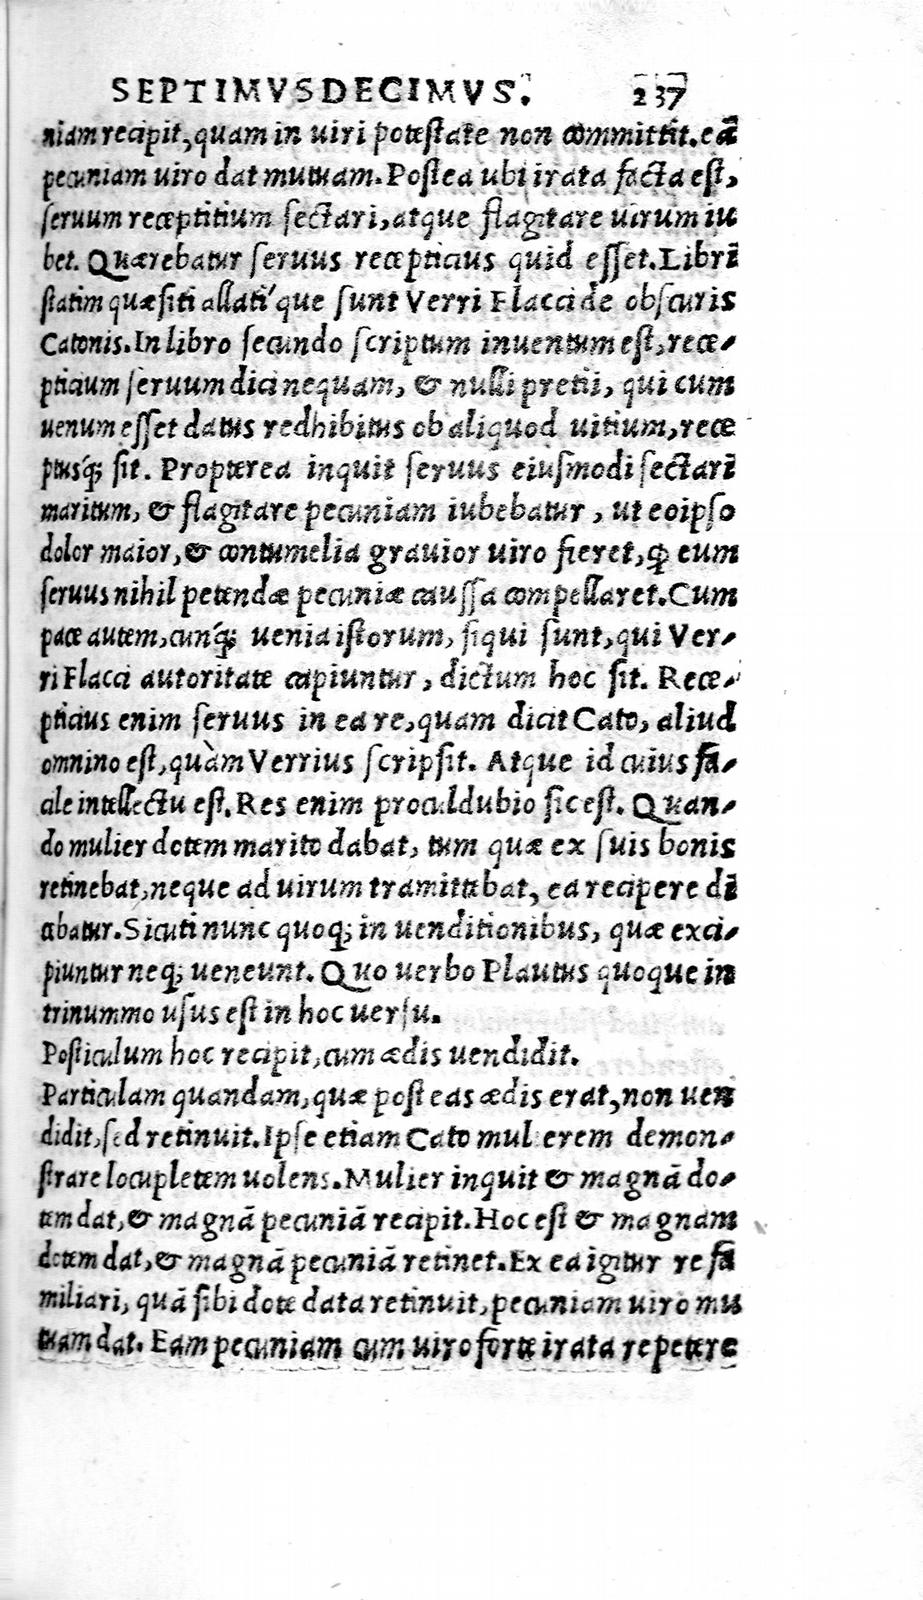 SEPTIMVSDECIMVS. 237
niam recipit, quam in uiri potestate non committit. eā
pecuniam uiro dat mutuam. Postea ubi irata facta est,
seruum receptitium sectari, atque flagitare uirum iu
bet. Quærebatur seruus recepticius quid esset. Librī
statim quæsiti allati'que sunt Verri Flacci de obscuris
Catonis. In libro secundo scriptum inuentum est, rece-
pticium seruum dici nequam, & nulli pretii, qui cum
uenum esset datus redhibitus ob aliquod uitium, rece
ptusq́; sit. Propterea inquit seruus eiusmodi sectari
maritum, & flagitare pecuniam iubebatur, ut eo ipso
dolor maior, & contumelia grauior uiro fieret, ꝙ eum
seruus nihil petendæ pecuniæ caussa compellaret. Cum
pace autem, cunq́; uenia istorum, siqui sunt, qui Ver-
ri Flacci autoritate capiuntur, dictum hoc sit. Rece-
pticius enim seruus in ea re, quam dicit Cato, aliud
omnino est, quàm Verrius scripsit. Atque id cuius fa-
cile intellectu est. Res enim proculdubio sic est. Quan-
do mulier dotem marito dabat, tum quæ ex suis bonis
retinebat, neque ad uirum tramittebat, ea recipere di
cebatur. Sicuti nunc quoq; in uenditionibus, quæ exci-
piuntur neq; ueneunt. Quo uerbo Plautus quoque in
trinummo usus est in hoc uersu.
Posticulum hoc recipit, cum ædis uendidit.
Particulam quandam, quæ post eas ædis erat, non uen
didit, sed retinuit. Ipse etiam Cato mulierem demon-
strare locupletem uolens. Mulier inquit & magnā do-
tem dat, & magnā pecuniā recipit. Hoc est & magnam
dotem dat, & magnā pecuniā retinet. Ex ea igitur re fa
miliari, quā sibi dote data retinuit, pecuniam uiro mu
tuam dat. Eam pecuniam cum uiro forte irata repetere